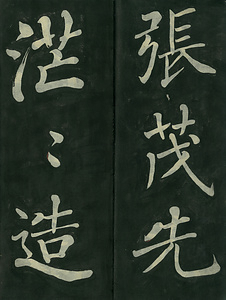 張茂先
茫〻造